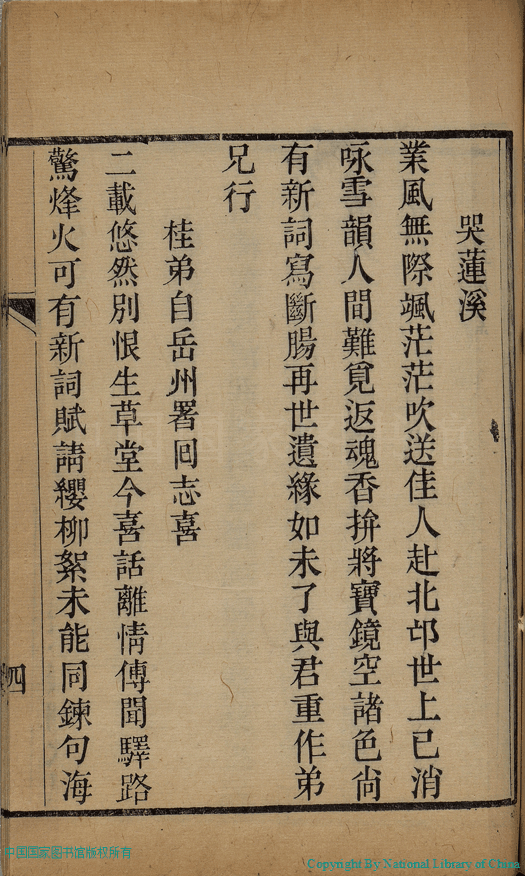 哭蓮溪
業風無際颯茫茫吹送佳人赴北邙世上已消
咏雪韻人間難覓返魂香拚將寶鏡空諸色尙
有新詞寫斷腸再世遺緣如未了與君重作弟
兄行
桂弟自岳州署囘志喜
二載悠然別恨生草堂今喜話離情傳聞驛路
驚烽火可有新詞賦請纓柳絮未能同鍊句海
四
中国国家图书馆版权所有
Copyright By National Library of China